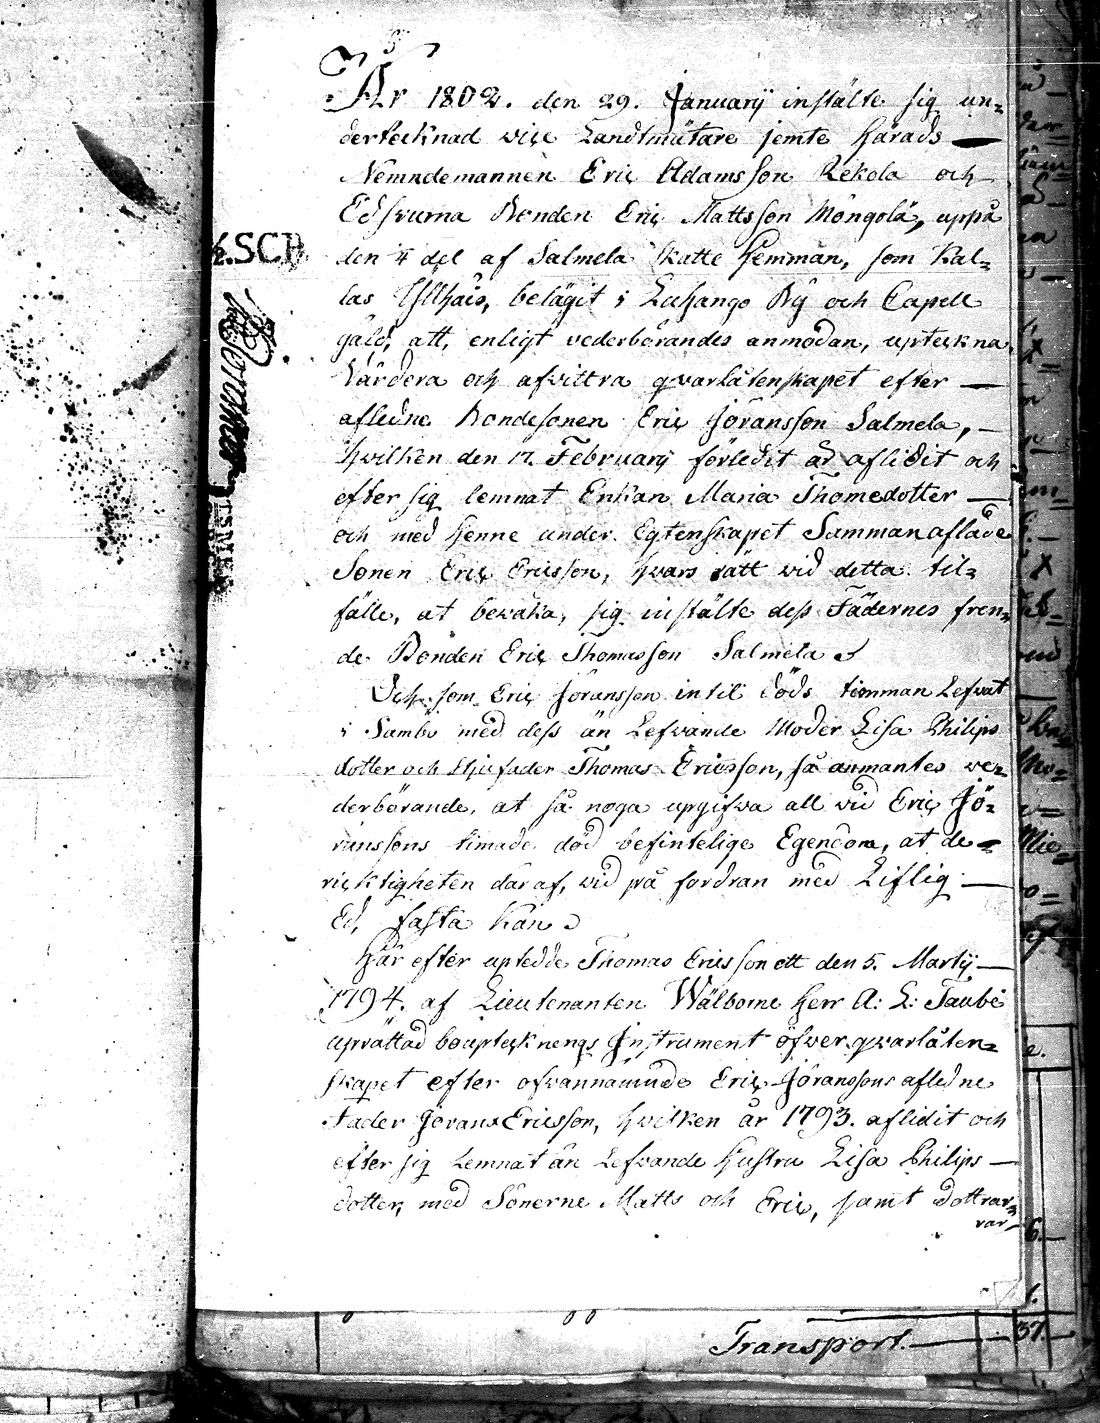 År 1802. den 29. Januarij instälte sig un=
dertecknad vice Landtmätare jemte Härads
Nemndemannen Eric Adamsson Rekola och
Edsvurna Bonden Eric Mattsson Mongola, uppå
den ¼ del af Salmela Skatte Hemman, som Kal=
las, belägit i Lahango By och Capell
gäld, att, enligt vederbörandes anmodan, uptekna,
Värdera och afvittra qvarlåtenskapet efter
afledne Bondesonen Eric Jöransson Salmela,
hvilken den 17. Februarij förledit år aflidit och
efter sig lemnat Enkan Maria Thomedotter
och med henne under Egtenskapet Sammanaflade
Sonen Eric Ericsson, hvars rätt vid detta til=
fälle, at bevaka, sig instälte dess Fädernes frän=
de Bonden Eric Thomasson Salmela
Och som Eric Jöransson intil döds timman Lefvat
i Sambo med dess än Lefvande Moder Lisa Philips
dotter och Stiufader Thomas Ericsson, så anmantes ve=
derbörande, at så noga upgifva all vid Eric Jö=
ranssons timade död befintelige Egendom, at de
ricktigheten däraf, vid på fordran med Liflig
Ed, fästa kan
Här efter uptedde Thomas Ericsson ett den 5. Martij
1794. af Lieutenanten Wälborne Herr A: L: Taube
uprättad bouptecknings Instrument öfver qvarlåten=
skapet efter ofvannämnde Eric Jöranssons afledne
Fader Jörans Ericsson, hvilken år 1793. aflidit och
efter sig Lemnat än Lefvande Hustru Lisa Philips
dotter, med Sönerne Matts och Eric, samt dottrar=
rar
½.SCH
Transport.
37
6.